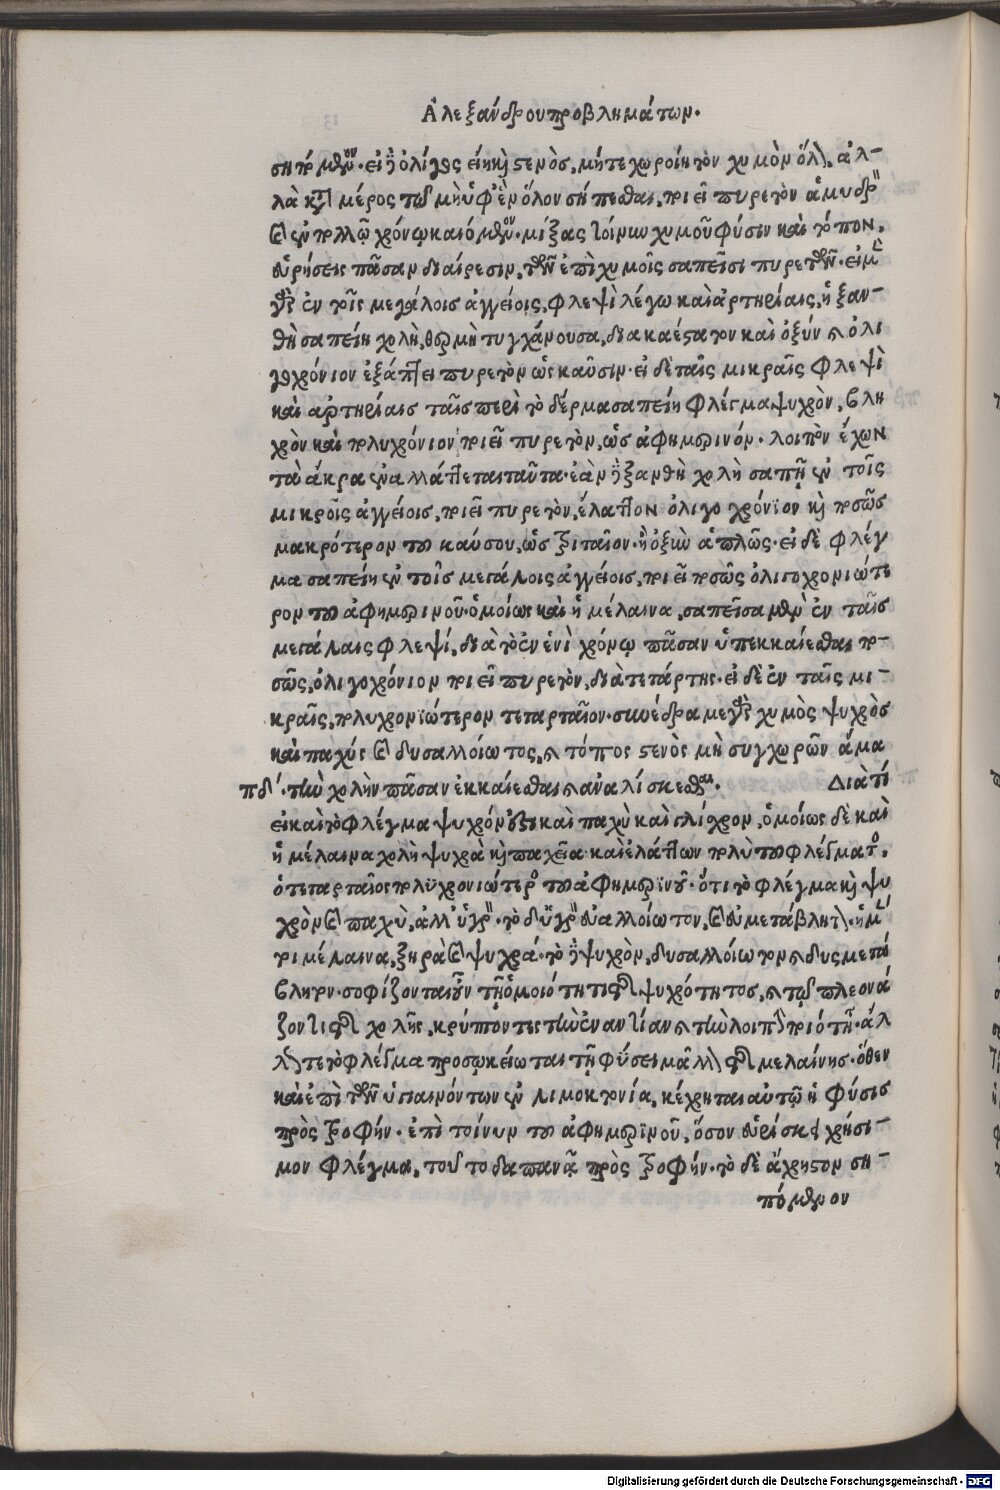 Ἀλεξάνδρου προβλημάτων.
σηπόμενον. εἰ δὲ ὀλίγος εἴη καὶ στενὸς, μήτε χωροίη τὸν χυμὸν ὅλον, ἀλ-
λὰ κατὰ μέρος τῷ μὴ ὑφ' ἓν ὅλον σήπεσθαι, ποιεῖ πυρετὸν ἀμυδρὸν
καὶ ἐν πολλῷ χρόνῳ καιόμενον. μίξας τοίνυν χυμοῦ φύσιν καὶ τόπον,
εὑρήσεις πᾶσαν διαίρεσιν, τῶν ἐπὶ χυμοῖς σαπεῖσι πυρετῶν. εἰ μὲν
γὰρ ἐν τοῖς μεγάλοις ἀγγείοις, φλεψὶ λέγω καὶ ἀρτηρίαις, ἡ ξαν-
θὴ σαπείη χολὴ, θερμὴ τυγχάνουσα, διακαέστατον καὶ ὀξύν καὶ ὀλι
γοχρόνιον ἐξάπτει πυρετὸν ὡς καῦσιν. εἰ δὲ ταῖς μικραῖς φλεψὶ
καὶ ἀρτηρίαις ταῖς περὶ τὸ δέρμα σαπείη φλέγμα ψυχρὸν, βλη
χρὸν καὶ πολυχρόνιον ποιεῖ πυρετὸν, ὡς ἀφημερινόν. λοιπὸν ἔχων
τὰ ἄκρα ἐναλλάττεται ταῦτα. ἐὰν ἡ ξανθὴ χολὴ σαπῇ ἐν τοῖς
μικροῖς ἀγγείοις, ποιεῖ πυρετὸν, ἔλαττον ὀλιγοχρόνϊον καὶ ποσῶς
μακρότερον τοῦ καύσου, ὡς τριταῖον. ἢ ὀξὺν ἁπλῶς. εἰ δὲ φλέγ
μα σαπείη ἐν τοῖς μεγάλοις ἀγγείοις, ποιεῖ ποσῶς ὀλιγοχρονιώτε
ρον τοῦ ἀφημερινοῦ. ὁμοίως καὶ ἡ μέλαινα, σαπεῖσα μὲν ἐν ταῖς
μεγάλαις φλεψί, διὰ τὸ ἐν ἑνὶ χρόνῳ πᾶσαν ὑπεκκαίεσθαι πο-
σῶς, ὀλιγοχρόνιον ποιεῖ πυρετὸν, διὰ τετάρτης. εἰ δὲ ἐν ταῖς μι-
κραῖς, πολυχρονϊώτερον τεταρταῖον. συνέδραμε γὰρ χυμὸς ψυχρὸς
καὶ παχύς καὶ δυσαλλοίωτος, καὶ τόπος στενὸς μὴ συγχωρῶν ἅμα
πδ'. τὴν χολὴν πᾶσαν ἐκκαίεσθαι καὶ ἀναλίσκεσθαι. Διὰ τί
εἰ καὶ τὸ φλέγμα ψυχρόν ἐστι καὶ παχὺ καὶ γλίσχρον, ὁμοίως δὲ καὶ
ἡ μέλαινα χολὴ ψυχρὰ καὶ παχεῖα καὶ ἐλάττων πολὺ τοῦ φλέγματος,
ὁ τεταρταῖος πολυχρονιώτερος τοῦ ἀφημερινοῦ. ὅτι τὸ φλέγμα καὶ ψυ
χρὸν καὶ παχὺ, ἀλλ' ὑγρόν. τὸ δ' ὑγρὸν εὐαλλοίωτον, καὶ εὐμετάβλητον. ἡ μέν
τοι μέλαινα, ξηρὰ καὶ ψυχρά. τὸ δὲ ψυχρὸν, δυσαλλοίωτον καὶ δυσμετά
βλητον. σοφίζονται γοῦν τῇ ὁμοιότητι τῆς ψυχρότητος, καὶ τῷ πλεονά
ζοντι τῆς χολῆς, κρύπτοντες τὴν ἐναντίαν καὶ τὴν λοιπὴν ποιότητα. ἀλ
λὰ τε τὸ φλέγμα προσῳκείωται τῇ φύσει μᾶλλον τῆς μελαίνης. ὅθεν
καὶ ἐπὶ τῶν ὑγιαινόντων ἐν λιμοκτονίᾳ, κέχρηται αὐτῷ ἡ φύσις
πρὸς τροφήν. ἐπὶ τοίνυν τοῦ ἀφημερϊνοῦ, ὅσον εὑρίσκει χρήσι-
μον φλέγμα, τοῦτο δαπανᾷ πρὸς τροφήν. τὸ δὲ ἄχρηστον ση-
πόμενον